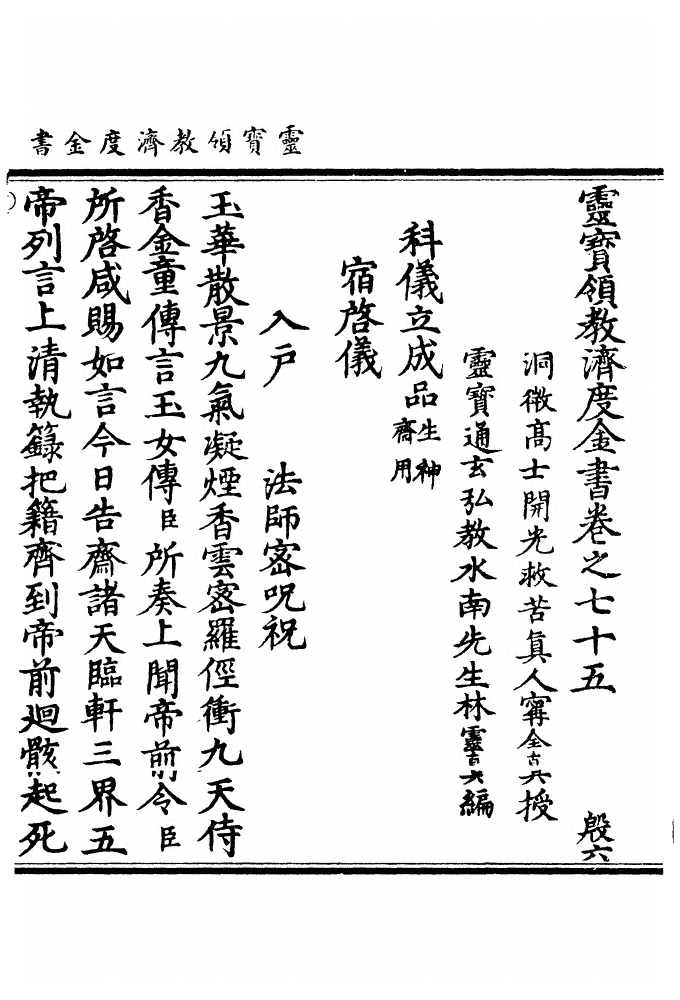 靈寶領教濟度金書
靈寶領教濟度金書卷之七十五　殷六
洞微高士開光救苦眞人寗全真授
靈寶通玄弘教水南先生林靈真編
科儀立成品生神齋用
宿啓儀
入戶　法師密呪祝
玉華散景九氣凝煙香雲密羅徑衝九天侍
香金童傳言玉女傳臣所奏上聞帝前令臣
所啓咸賜如言今日告齋諸天臨軒三界五
帝列言上清執籙把籍齊到帝前廻骸起死